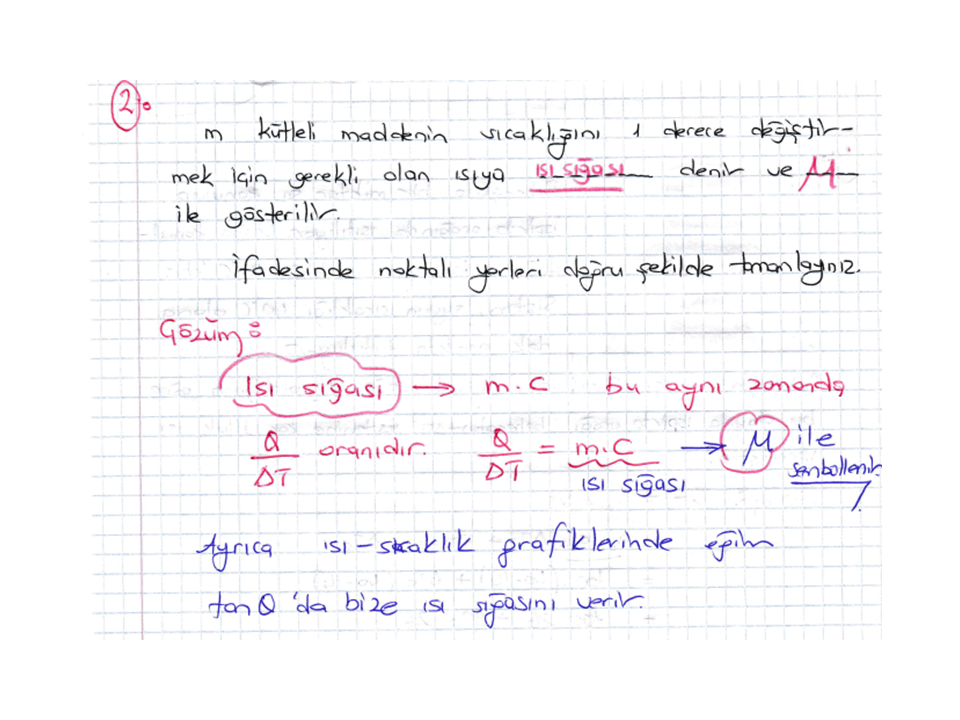 2.
m kütleli maddenin sıcaklığını 1 derece değiştir-
mek için gerekli olan ısıya ısı sığası denir ve μ
ile gösterilir.
İfadesinde noktalı yerleri doğru şekilde tamamlayınız.
Çözüm:
Isı sığası → m.C bu aynı zamanda
Q/ΔT oranıdır. Q/ΔT = m.C → μ ile
ısı sığası sembollenir.
Ayrıca ısı-sıcaklık grafiklerinde eğim
tan Q 'da bize ısı sığasını verir.